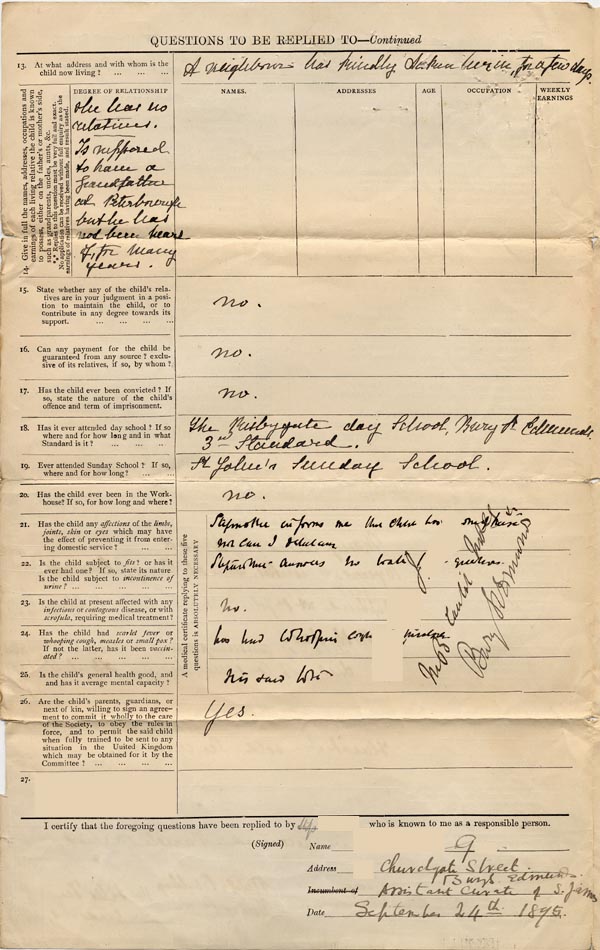 QUESTIONS TO BE REPLIED TO—Continued
13. At what address and with whom is the
child now living? ... ... ...
A neighbour has kindly taken her in for a few days.
14. Give in full the names, addresses, occupations and
earnings of each living relative the child is known
to possess, either on the father's or mother's side,
such as grandparents, uncles, aunts, &c.
*** Replies to this question must be very full and exact.
No application can be received without full enquiry as to the
earnings of relatives having been made, and result stated.
DEGREE OF RELATIONSHIP
NAMES.
ADDRESSES
AGE
OCCUPATION
WEEKLY
EARNINGS
She has no
relatives.
Is supposed
to have a
grandfather
at Peterborough
but he has
not been heard
of for many
years.
15. State whether any of the child's rela-
tives are in your judgment in a posi-
tion to maintain the child, or to
contribute in any degree towards its
support. ... ... ... ...
no.
16. Can any payment for the child be
guaranteed from any source? exclu-
sive of its relatives, if so, by whom?
no.
17. Has the child ever been convicted? If
so, state the nature of the child's
offence and term of imprisonment.
no.
18. Has it ever attended day school? If so
where and for how long and in what
Standard is it? ... ... ...
The Risbygate day School, Bury St Edmunds.
3rd Standard.
19. Ever attended Sunday School? If so,
where and for how long? ... ...
St John's Sunday School.
20. Has the child ever been in the Work-
house? If so, for how long and where?
no.
A medical certificate replying to these five
questions is ABSOLUTELY NECESSARY
21. Has the child any affections of the limbs,
joints, skin or eyes which may have
the effect of preventing it from enter-
ing domestic service? ... ...
Stepmother informs me the child has
nor can I
22. Is the child subject to fits? or has it
ever had one? If so, state its nature
Is the child subject to incontinence of
urine? ... ... ... ...
Stepmother answers no to
23. Is the child at present affected with any
infectious or contagious disease, or with
scrofula, requiring medical treatment?
no.
24. Has the child had scarlet fever or
whooping cough, measles or small pox?
If not the latter, has it been vaccin-
ated? ... ... ... ...
has had Whooping cough
25. Is the child's general health good, and
and has it average mental capacity?
Bury St Edmunds
26. Are the child's parents, guardians, or
next of kin, willing to sign an agree-
ment to commit it wholly to the care
of the Society, to obey the rules in
force, and to permit the said child
when fully trained to be sent to any
situation in the United Kingdom
which may be obtained for it by the
Committee? ... ... ... ...
Yes.
27.
I certify that the foregoing questions have been replied to by
who is known to me as a responsible person.
(Signed)
Name
Address Churchgate Street
Bury St Edmunds
Incumbent of Assistant Curate of S. James
Date September 24th 1895.